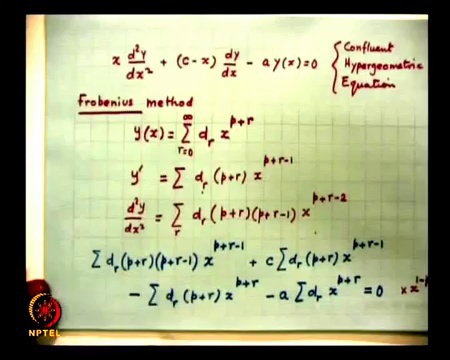 x d²y/dx² + (c-x) dy/dx - a y(x) = 0 { Confluent
Hypergeometric
Equation
Frobenius method
y(x) = ∑_{r=0}^{∞} d_r x^{p+r}
y' = ∑ d_r (p+r) x^{p+r-1}
d²y/dx² = ∑_r d_r (p+r)(p+r-1) x^{p+r-2}
∑ d_r (p+r)(p+r-1) x^{p+r-1} + c ∑ d_r (p+r) x^{p+r-1}
- ∑ d_r (p+r) x^{p+r} - a ∑ d_r x^{p+r} = 0 × x^{1-p}
NPTEL